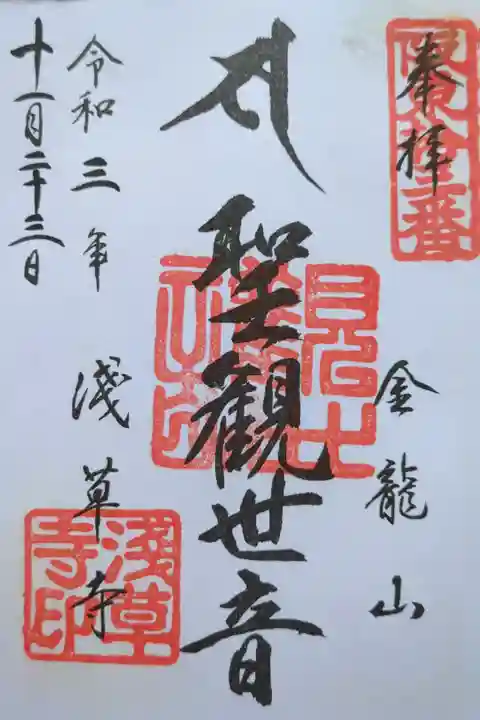 奉拝
坂東拾三番
金龍山
聖観世音
淺草寺
淺草寺印
令和三年
十一月二十三日